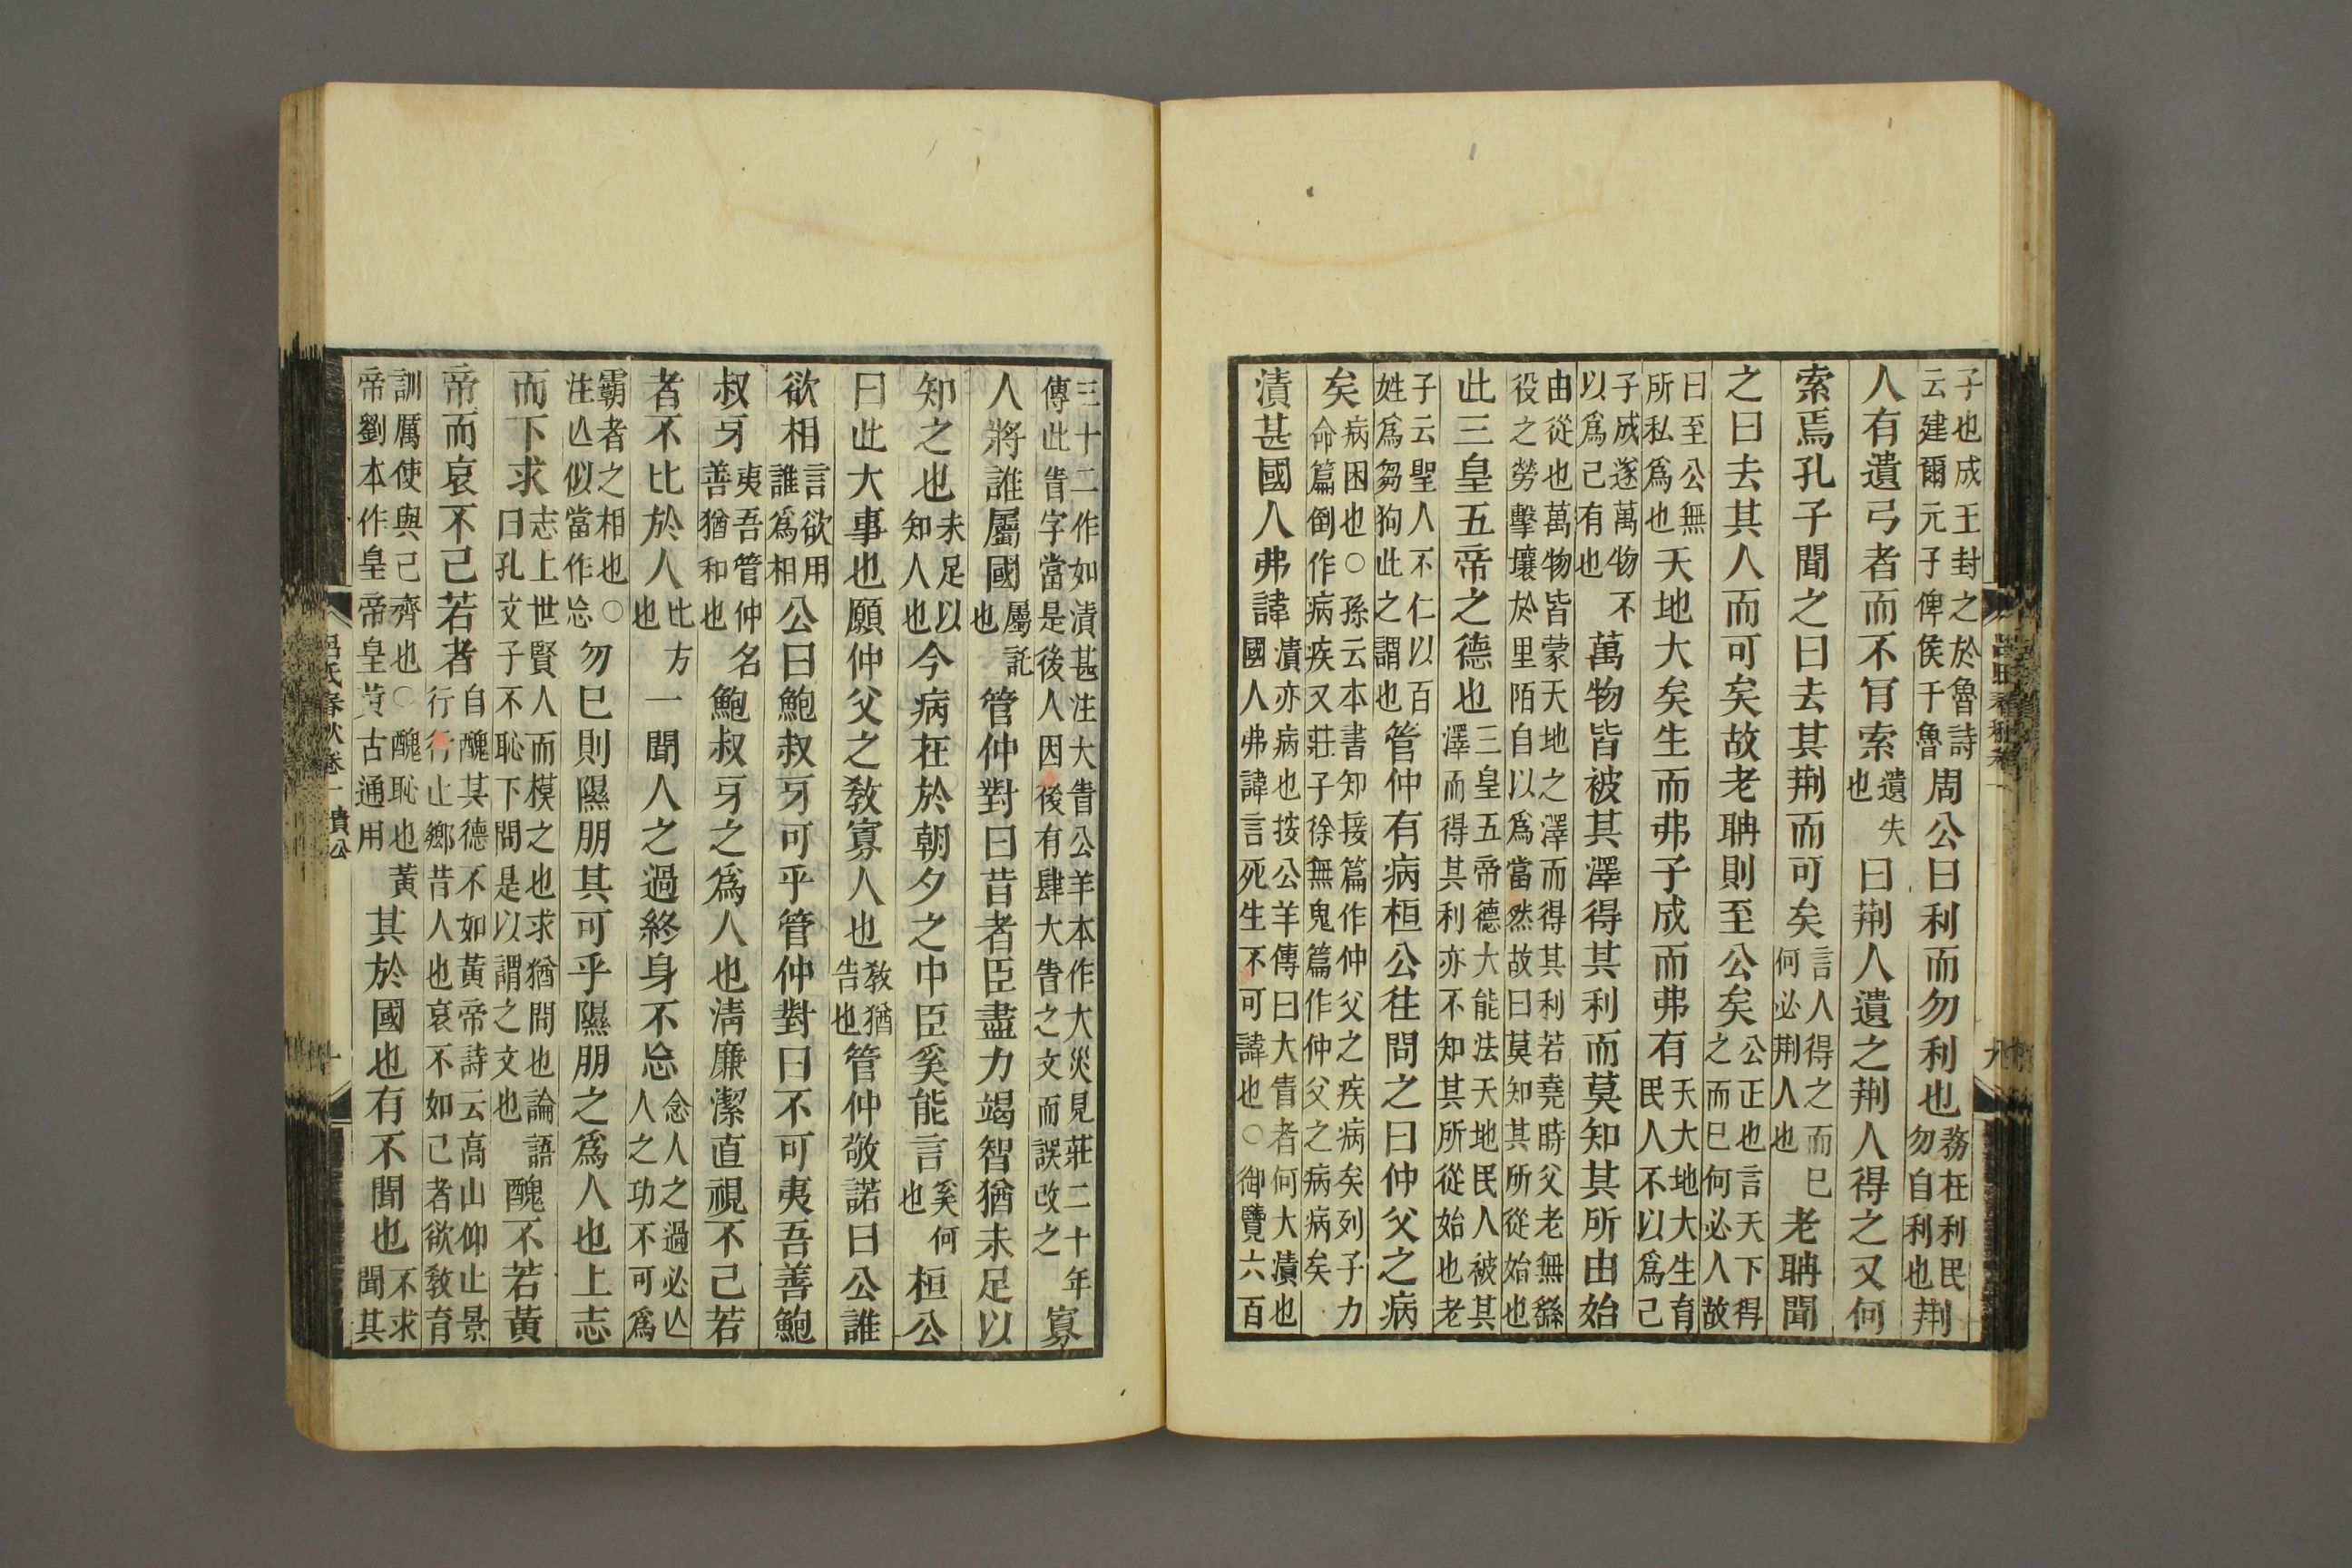 子也成王封之於魯詩云建爾元子俾侯于魯周公曰利而勿利也務在利民勿自利也荆
人有遺弓者而不肯索遺失也曰荆人遺之荆人得之又何
索焉孔子聞之曰去其荆而可矣言人得之而已何必荆人也老聃聞
之曰去其人而可矣故老聃則至公矣公正也言天下得之而已何必人故
曰至公無所私爲也天地大矣生而弗子成而弗有天大地大生育民人不以爲己
子成遂萬物不以爲己有也萬物皆被其澤得其利而莫知其所由始
由從也萬物皆蒙天地之澤而得其利若堯時父老無繇役之勞擊壤於里陌自以爲當然故曰莫知其所從始也
此三皇五帝之德也三皇五帝德大能法天地民人被其澤而得其利亦不知其所從始也老
子云聖人不仁以百姓爲芻狗此之謂也管仲有病桓公往問之曰仲父之病
矣病困也○孫云本書知接篇作仲父之疾病矣列子力命篇倒作病疾又莊子徐無鬼篇作仲父之病病矣
漬甚國人弗諱漬亦病也按公羊傳曰大眚者何大漬也國人弗諱言死生不可諱也○御覽六百
三十二作如漬甚注大眚公羊本作大災見莊二十年傳此眚字當是後人因後有肆大眚之文而誤改之寡
人將誰屬國屬託也管仲對曰昔者臣盡力竭智猶未足以
知之也未足以知人也今病在於朝夕之中臣奚能言奚何也桓公
曰此大事也願仲父之敎寡人也敎猶告也管仲敬諾曰公誰
欲相言欲用誰爲相公曰鮑叔牙可乎管仲對曰不可夷吾善鮑
叔牙夷吾管仲名善猶和也鮑叔牙之爲人也淸廉潔直視不己若
者不比於人比方也一聞人之過終身不忘念人之過必亾人之功不可爲
霸者之相也○注亾似當作忘勿已則隰朋其可乎隰朋之爲人也上志
而下求志上世賢人而模之也求猶問也論語曰孔文子不恥下問是以謂之文也醜不若黃
帝而哀不己若者自醜其德不如黃帝詩云高山仰止景行行止鄉昔人也哀不如己者欲敎育
訓厲使與己齊也○醜恥也黃帝劉本作皇帝皇黃古通用其於國也有不聞也不求聞其
呂氏春秋卷一 貴公